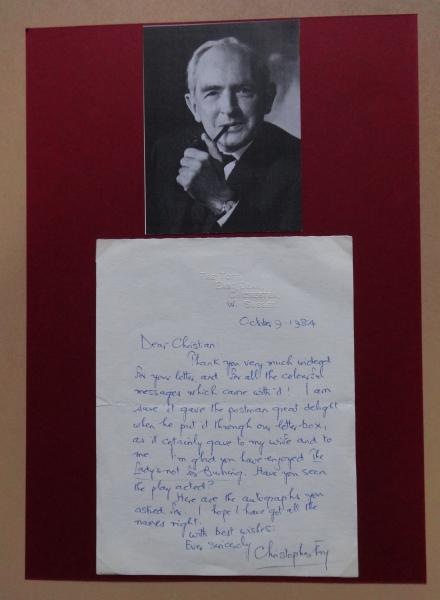 The Toft,
East Dean,
Chichester,
W. Sussex
October 9. 1984
Dear Christian:
Thank you very much indeed
for your letter, and for all the colourful
messages which came with it! I am
sure it gave the postman great delight
when he put it through our letter-box,
as it certainly gave to my wife and to
me. I'm glad you have enjoyed The
Lady's not for Burning. Have you seen
the play acted?
Here are the autographs you
asked for. I hope I have got all the
names right.
With best wishes:
Ever sincerely
Christopher Fry